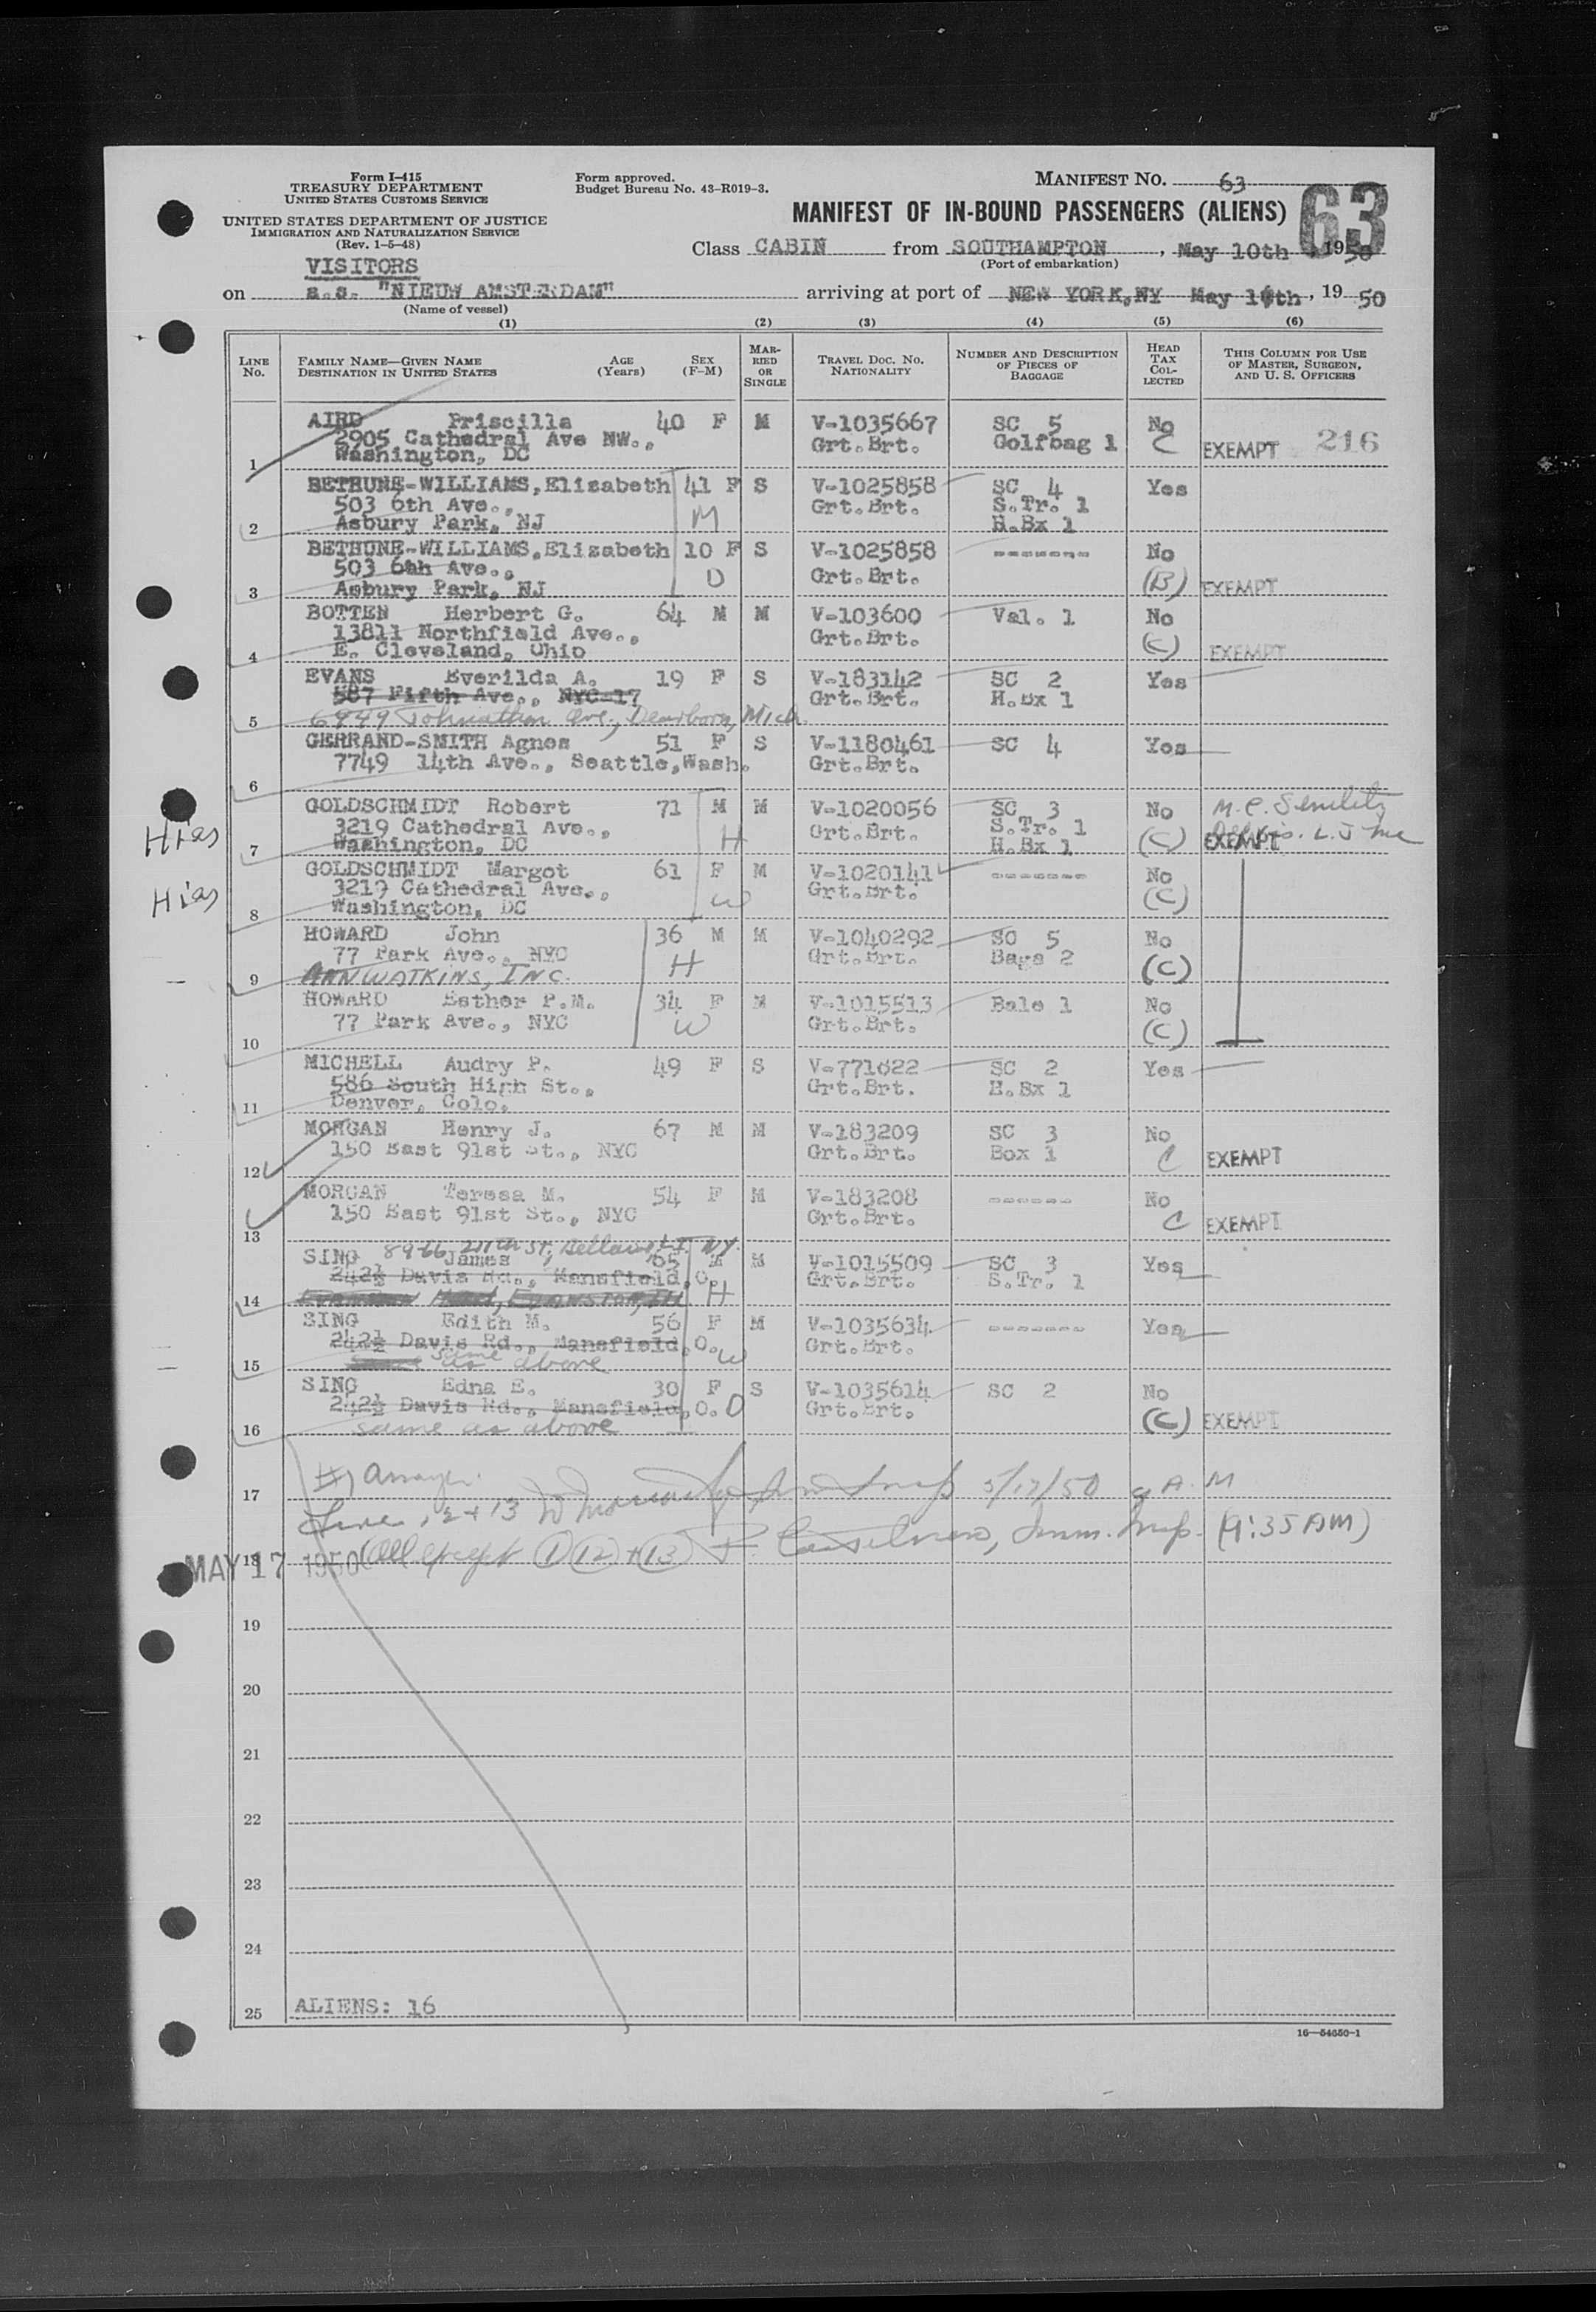 Form I-415
TREASURY DEPARTMENT
UNITED STATES CUSTOMS SERVICE
UNITED STATES DEPARTMENT OF JUSTICE
IMMIGRATION AND NATURALIZATION SERVICE
(Rev. 1-5-48)
Form approved.
Budget Bureau No. 43-R019-3.
MANIFEST NO. 63
63
MANIFEST OF IN-BOUND PASSENGERS (ALIENS)
Class CABIN from SOUTHAMPTON, May 10th, 1950
(Port of embarkation)
VISITORS
on s.s. "NIEUW AMSTERDAM" arriving at port of NEW YORK,NY May 1 th, 19 50
(Name of vessel)
(1) (2) (3) (4) (5) (6)
LINE NO.
FAMILY NAME—GIVEN NAME
DESTINATION IN UNITED STATES
AGE (Years)
SEX (F-M)
MARRIED OR SINGLE
TRAVEL DOC. NO.
NATIONALITY
NUMBER AND DESCRIPTION OF PIECES OF BAGGAGE
HEAD TAX COLLECTED
THIS COLUMN FOR USE OF MASTER, SURGEON, AND U. S. OFFICERS
AIRD Priscilla 40 F M V-1035667 SC 5 No
2905 Cathedral Ave NW., Grt.Brt. Golfbag 1 C EXEMPT 216
1 Washington, DC
BETHUNE-WILLIAMS, Elizabeth 41 F S V-1025858 SC 4 Yes
503 6th Ave., M Grt.Brt. S.Tr. 1
2 Asbury Park, NJ H.Bx 1
BETHUNE-WILLIAMS, Elizabeth 10 F S V-1025858 ------- No
503 6th Ave., D Grt.Brt. (B) EXEMPT
3 Asbury Park, NJ
BOTTEN Herbert G. 64 M M V-103600 Val. 1 No
13811 Northfield Ave., Grt.Brt. (C) EXEMPT
4 E. Cleveland, Ohio
EVANS Everilda A. 19 F S V-183142 SC 2 Yes
587 Fifth Ave., NYC-17 Grt.Brt. H.Bx 1
5 6949 Johnathan Ave., Dearborn, Mich.
GERRAND-SMITH Agnes 51 F S V-1180461 SC 4 Yes
7749 14th Ave., Seattle,Wash. Grt.Brt.
6
GOLDSCHMIDT Robert 71 M M V-1020056 SC 3 No
Hias 3219 Cathedral Ave., H Grt.Brt. S.Tr. 1 (C) EXEMPT
7 Washington, DC H.Bx 1
GOLDSCHMIDT Margot 61 F M V-1020141 ------- No
Hias 3219 Cathedral Ave., W Grt.Brt. (C)
8 Washington, DC
HOWARD John 36 M M V-1040292 SC 5 No
77 Park Ave., NYC H Grt.Brt. Bags 2 (C)
9 ANN WATKINS, INC.
HOWARD Esther P.M. 34 F M V-1015513 Bale 1 No
77 Park Ave., NYC W Grt.Brt. (C)
10
MICHELL Audry P. 49 F S V-771822 SC 2 Yes
586 South High St., Grt.Brt. H.Bx 1
11 Denver, Colo.
MORGAN Henry J. 67 M M V-183209 SC 3 No
150 East 91st St., NYC Grt.Brt. Box 1 C EXEMPT
12
MORGAN Teresa M. 54 F M V-183208 ------ No
150 East 91st St., NYC Grt.Brt. C EXEMPT
13
89-66 211th St, Bellaire, L.I. NY.
SING James 65 M M V-1015509 SC 3 Yes
242½ Davis Rd., Mansfield,O. Grt.Brt. S.Tr. 1
14 EVANSTON, Ill H
SING Edith M. 56 F M V-1035634 ------- Yes
242½ Davis Rd., Mansfield,O. W Grt.Brt.
15 same as above
SING Edna E. 30 F S V-1035614 SC 2 No
242½ Davis Rd., Mansfield,O. D Grt.Brt. (C) EXEMPT
16 same as above
17 5/17/50 9 A.M
Line 12 + 13
18 MAY 17 1950 (All except 1 12 + 13) Imm. Insp. (9:35 AM)
19
20
21
22
23
24
25 ALIENS: 16
16—54650-1